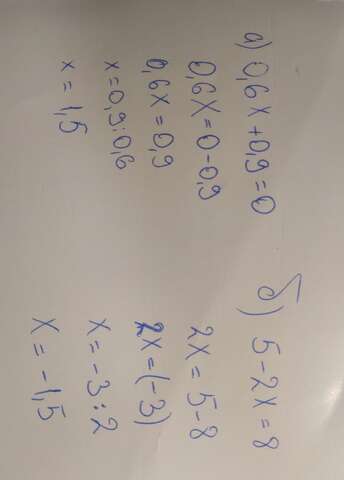 а) 0,6x+0,9=0
0,6x=0-0,9
0,6x=0,9
x=0,9:0,6
x=1,5
б) 5-2x=8
2x=5-8
2x=(-3)
x=-3:2
x=-1,5